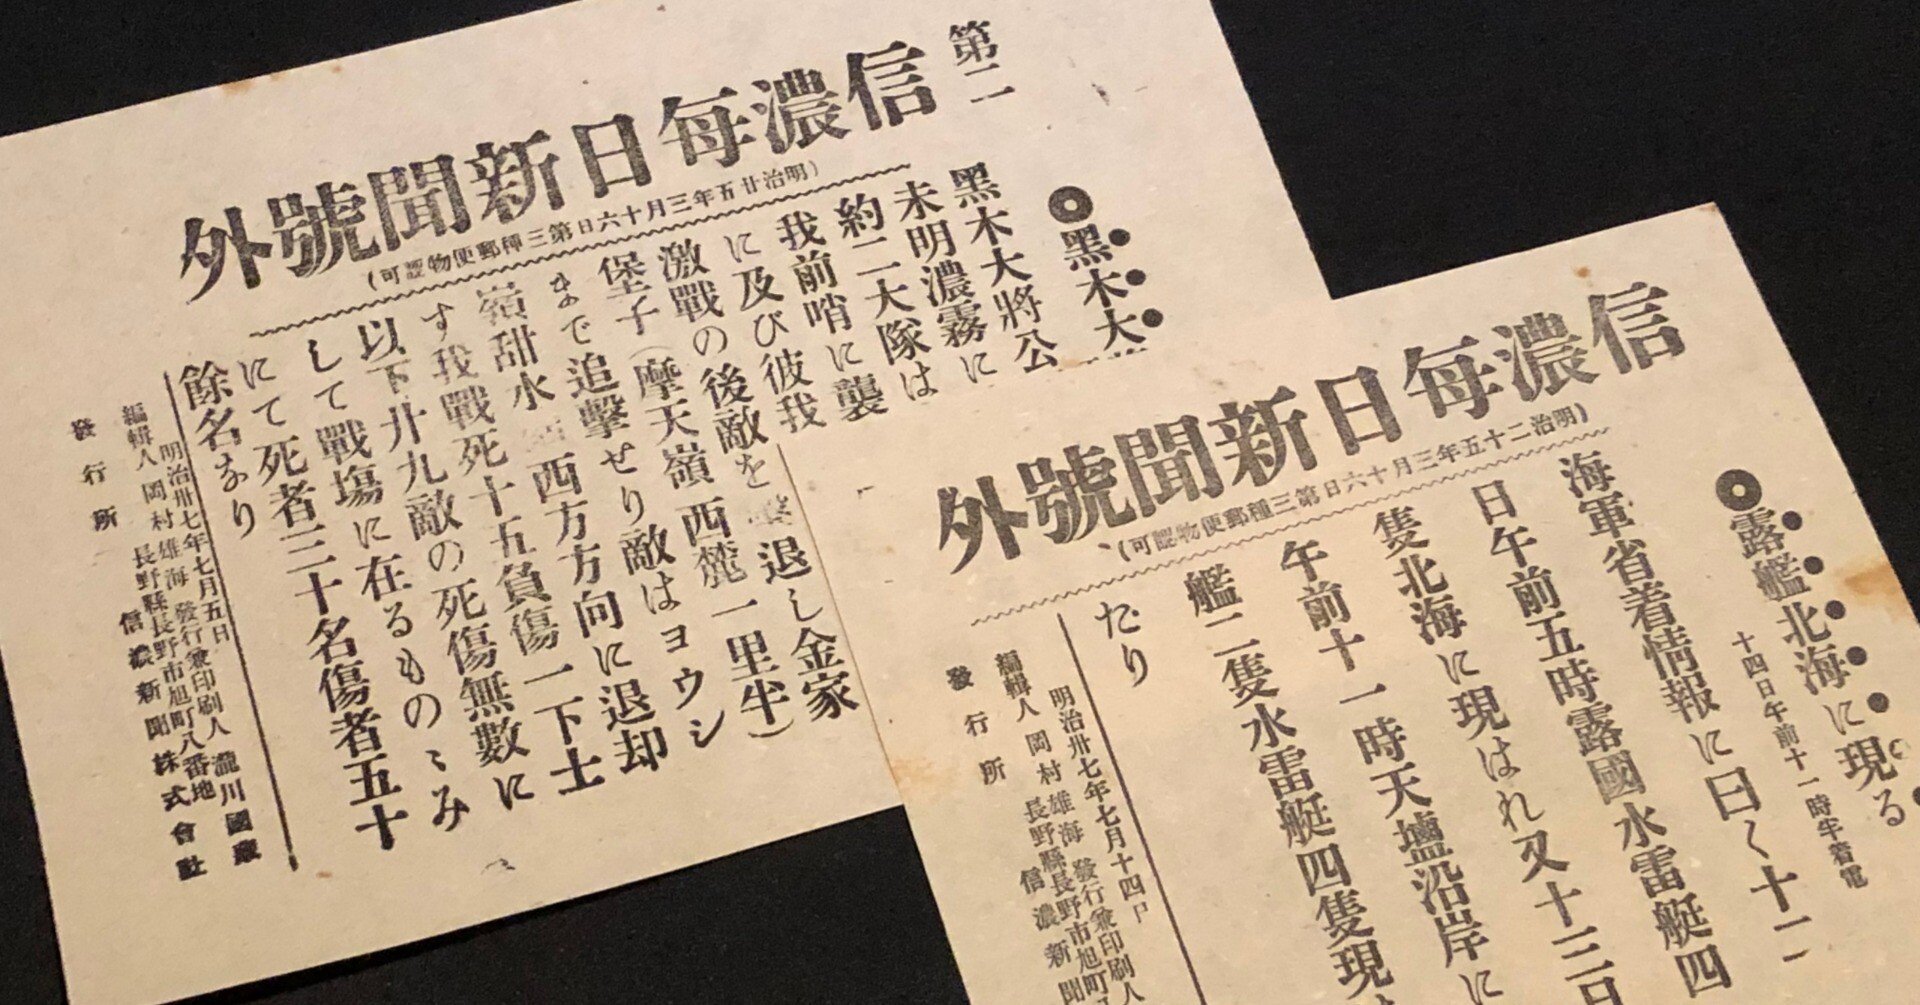 第二
信濃每日新聞號外
(明治廿五年三月十六日第三種郵便物認可)
◎黑木大
黑木大將公
未明濃霧に
約二大隊は
我前哨に襲
に及び彼我
激戰の後敵を 退し金家
堡子(摩天嶺西麓一里半)
まで追擊せり敵はヨウシ
嶺甜水 西方方向に退却
す我戰死十五負傷一下士
以下廾九敵の死傷無數に
して戰塲に在るものゝみ
にて死者三十名傷者五十
餘名なり
明治卅七年七月五日
編輯人 岡村雄海 發行兼印刷人 瀧川國藏
長野縣長野市旭町八番地
發行所 信濃新聞株式會社
信濃每日新聞號外
(明治二十五年三月十六日第三種郵便物認可)
◎露艦北海に現る
十四日午前十一時半着電
海軍省着情報に曰く十二
日午前五時露國水雷艇四
隻北海に現はれ又十三日
午前十一時天壚沿岸に
艦二隻水雷艇四隻現
だり
明治卅七年七月十四日
編輯人 岡村雄海 發行兼印刷人
長野縣長野市旭町
發行所 信濃新聞